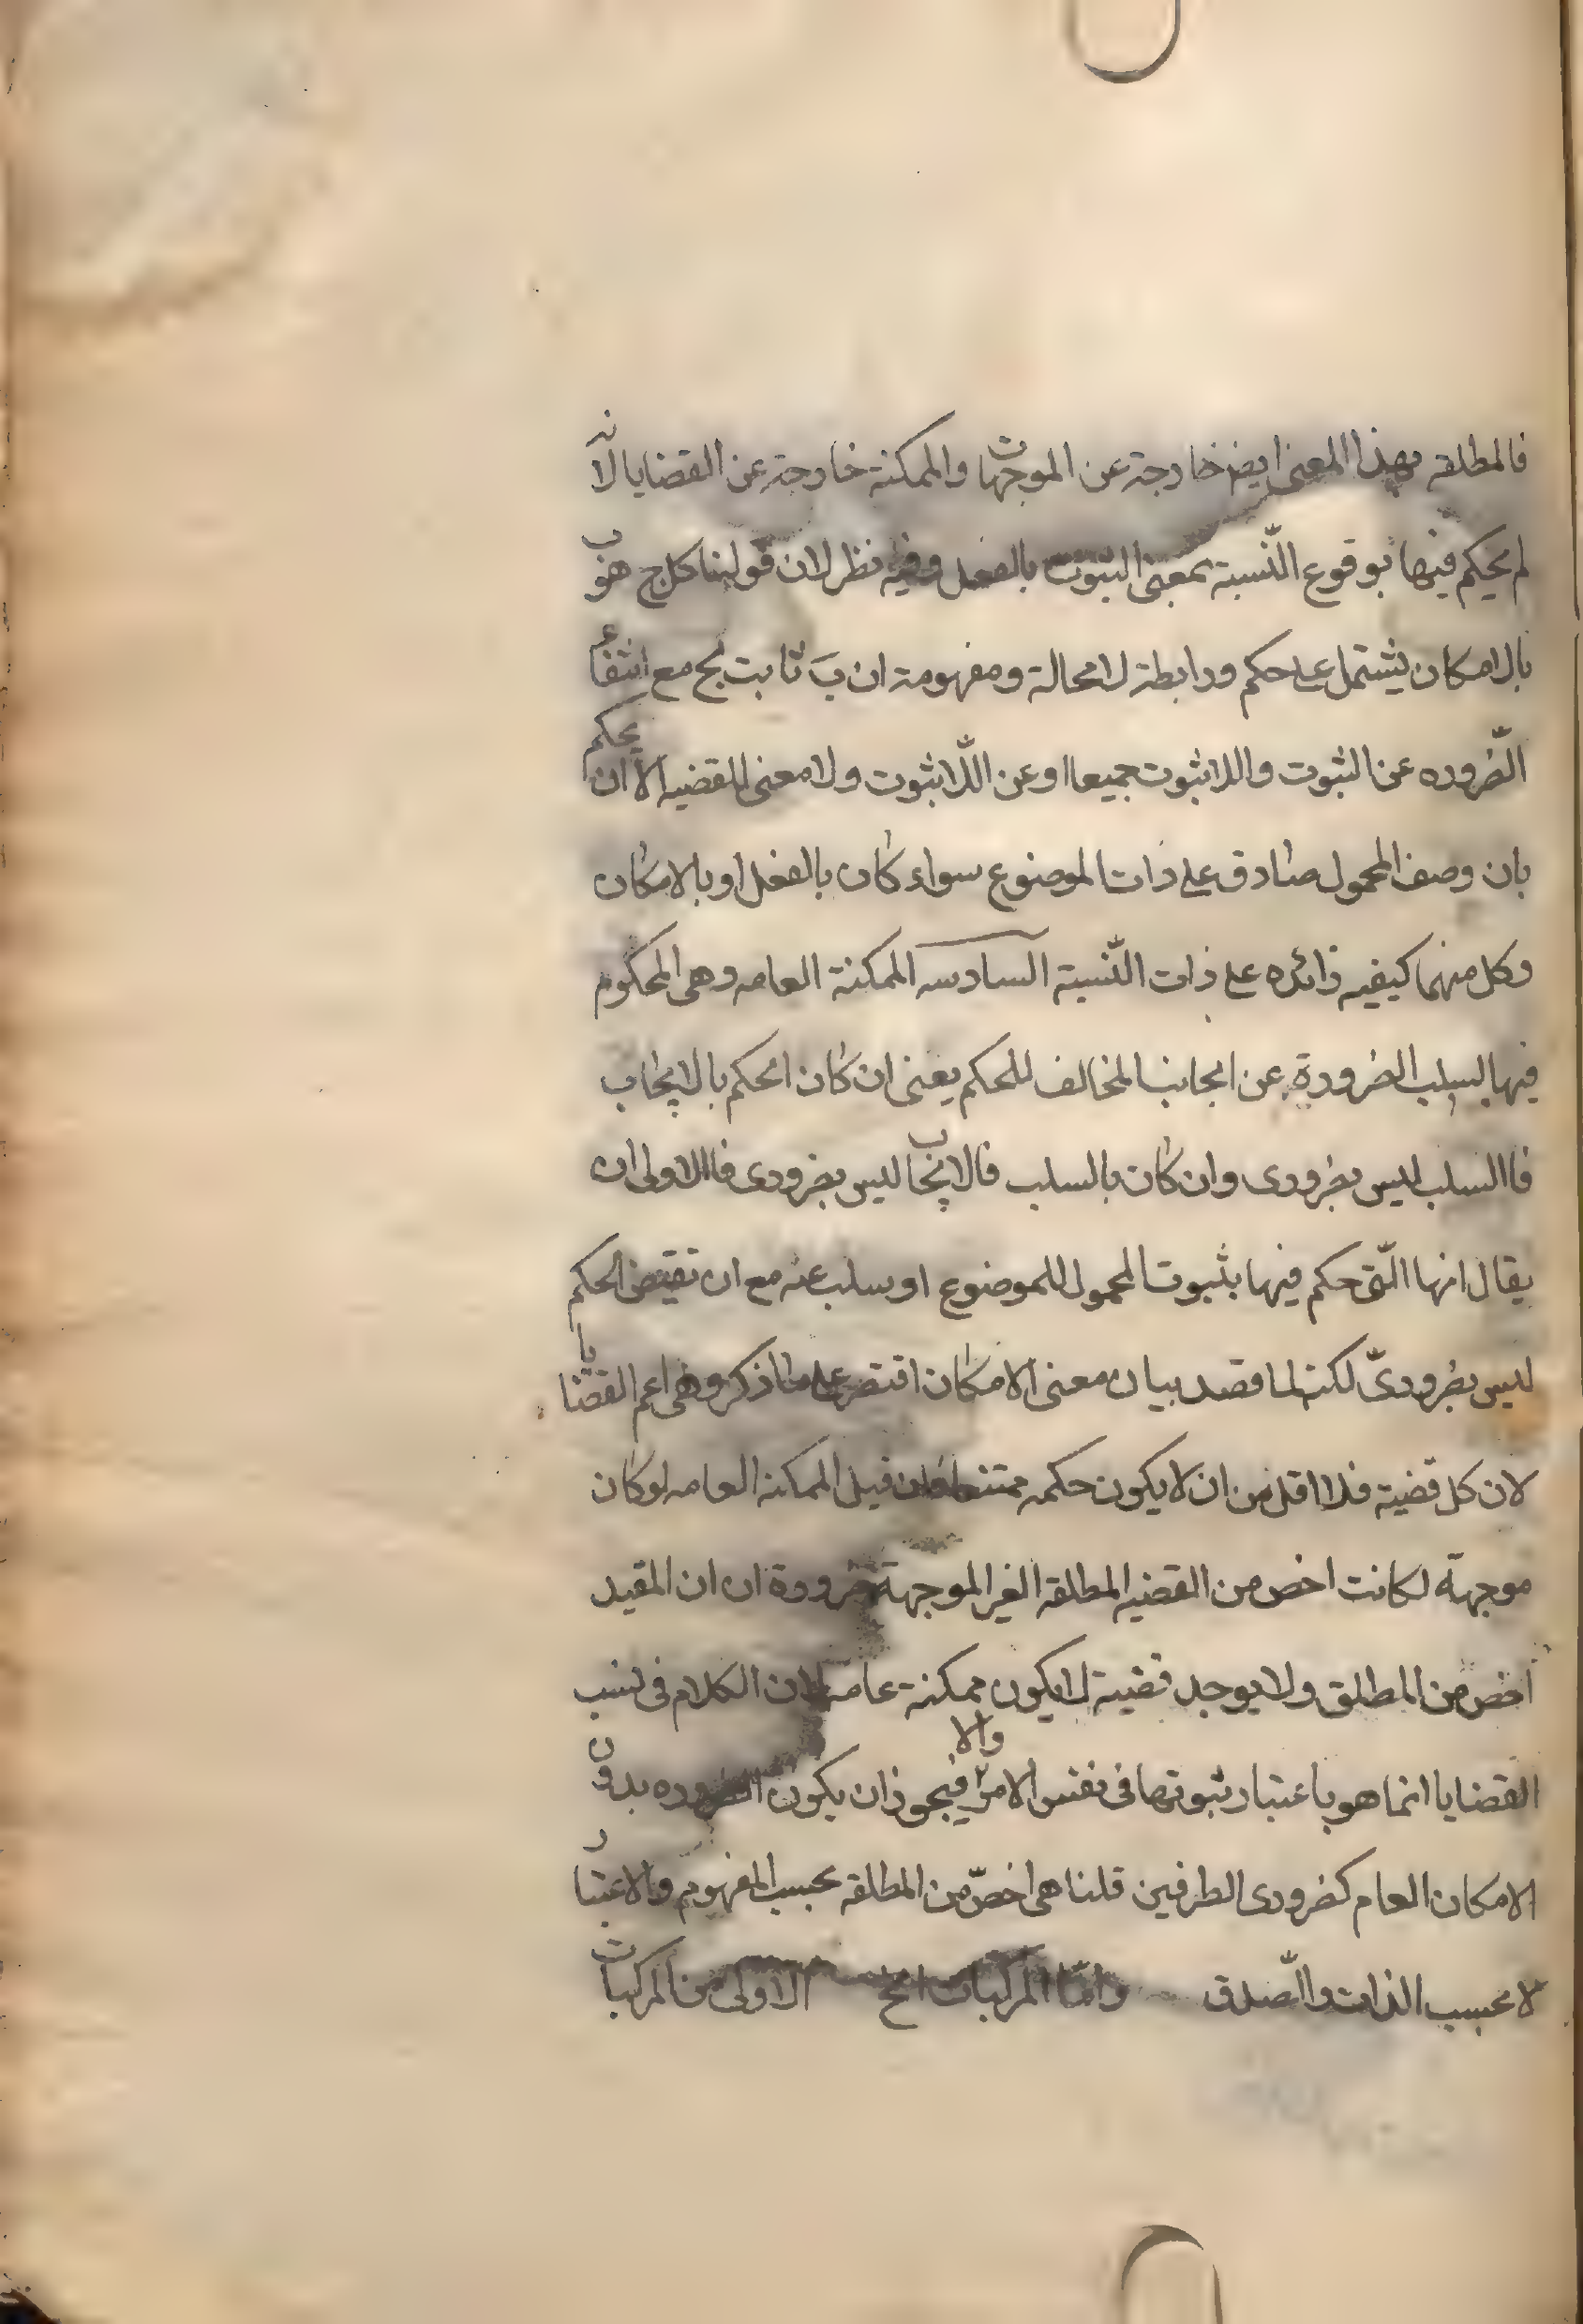 فالمطلقه بهذا المعنى ايضا خارجة عن الموجهات والممكنة خارجة عن القضايا لانه
لم يحكم فيها بوقوع النّسبة بمعنى الثبوت بالفعل وفيه نظر لان قولنا كل ج هو ب
بالامكان يشتمل على حكم ورابطة لا محالة ومفهومة ان بَ ثابت لج مع انتفاء
الضّروره عن الثبوت واللاثبوت جميعا او عن اللّاثبوت ولا معنى للقضيه الا ان يحكم
بان وصف المحمول صادق على ذات الموضوع سواء كان بالفعل او بالامكان
وكل منهما كيفيه زائده على ذات النّسبة السادسه الممكنة العامه وهى المحكوم
فيها بسلب الضرورة عن الجانب المخالف للحكم يعنى ان كان الحكم بالايجاب
فاالسلب ليس بضرورى وان كان بالسلب فالايجاب ليس بضرورى فاالاولى ان
يقال انها الّتى حكم فيها بثبوت المحمول للموضوع او سلب عنه مع ان نقيض الحكم
ليس بضرورىّ لكنه لما قصد بيان معنى الامكان اقتصر على ما ذكر وهى اعم القضايا
لان كل قضية فلا اقل من ان لا يكون حكمه ممتنعا فان قيل الممكنه العامه لو كان
موجهة لكانت اخص من القضيه المطلقه الغير الموجهة ضرورة ان ان المقيد
اخص من المطلق ولا يوجد قضية لا يكون ممكنة عامة لان الكلام فى نسب
القضايا انما هو باعتبار ثبوتها فى نفس الامر والا فيجوز ان يكون الضروره بدون
الامكان العام كضرورى الطرفين قلنا هى اخصّ من المطلقه بحسب المفهوم والاعتبار
لا بحسب الذات والصّدق وامّا المركبات الخ الاولى من المركبات